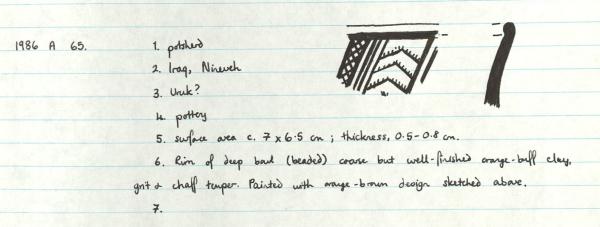 1986 A 65.
1. potsherd
2. Iraq, Nineveh
3. Uruk?
4. pottery
5. surface area c. 7 x 6.5 cm ; thickness, 0.5-0.8 cm.
6. Rim of deep bowl (beaded) coarse but well-finished orange-buff clay,
grit & chaff temper. Painted with orange-brown design sketched above.
7.